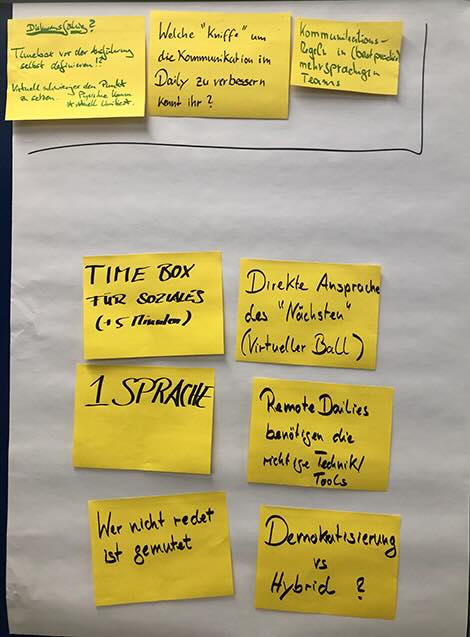 Diskussionsfrage?
Timebox vor der Ausführung
selbst definieren!?
Virtuell schwieriger den Punkt
zu setzen. Physische Kann
virtuell
Welche "Kniffe" um
die Kommunikation im
Daily zu verbessern
kennt ihr?
Kommunikations-
regeln in (bestehenden)
mehrsprachigen
Teams
TIME BOX
FÜR SOZIALES
(+5 Minuten)
Direkte Ansprache
des "Nächsten"
(Virtueller Ball)
1 SPRACHE
Remote Dailies
benötigen die
richtige Technik/
Tools
Wer nicht redet
ist gemutet
Demokratisierung
vs
Hybrid?